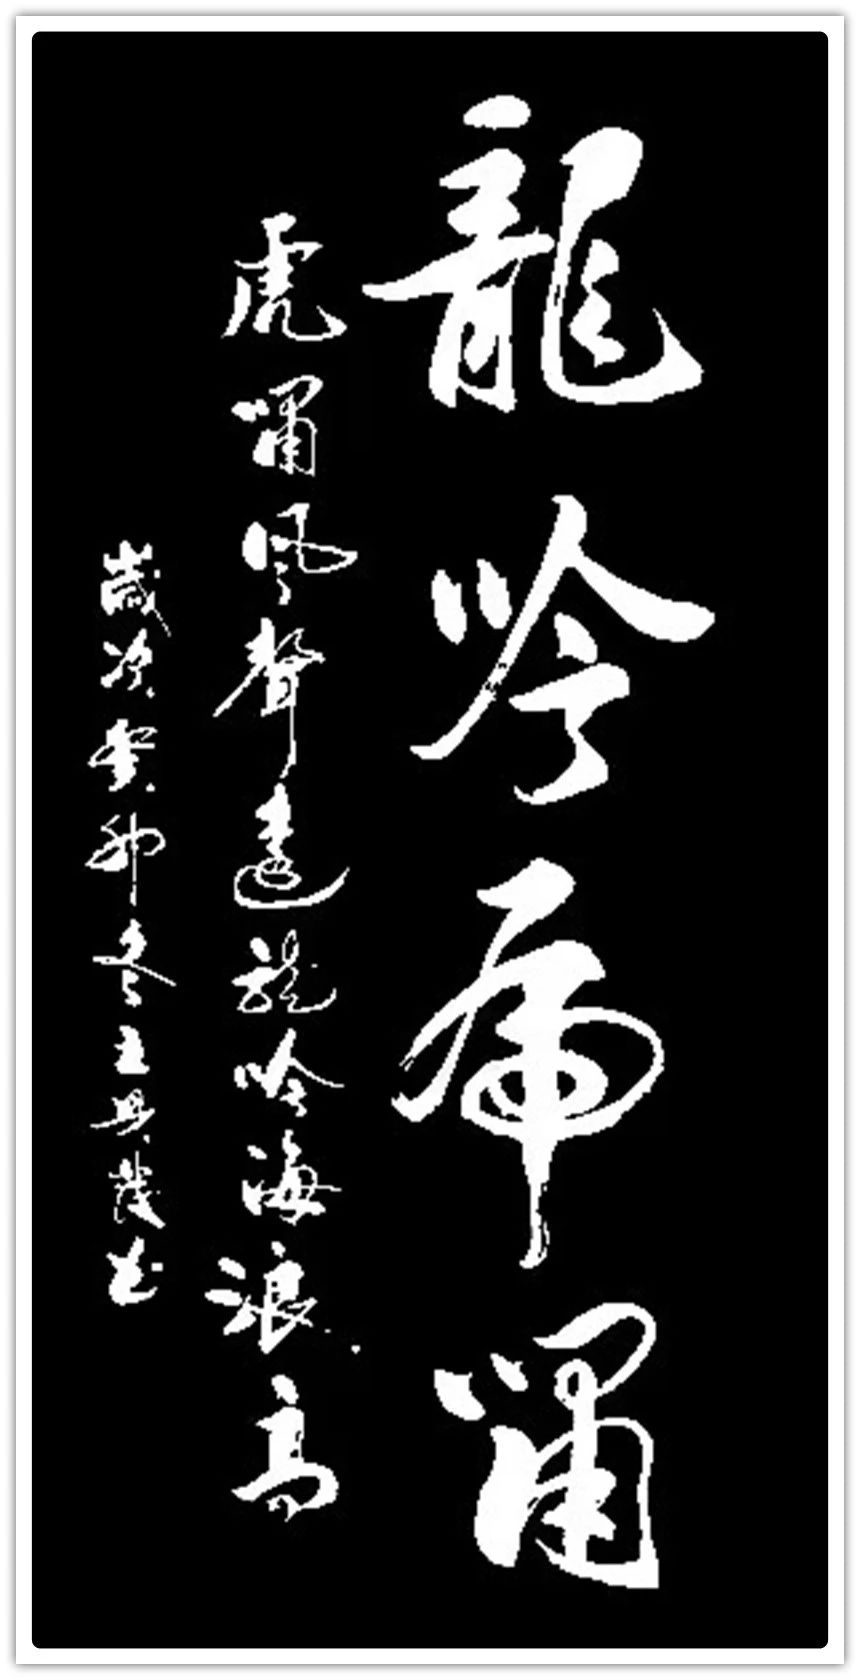 龍吟虎嘯
虎嘯風聲遠龍吟海浪高
歲次癸卯冬王興茂書